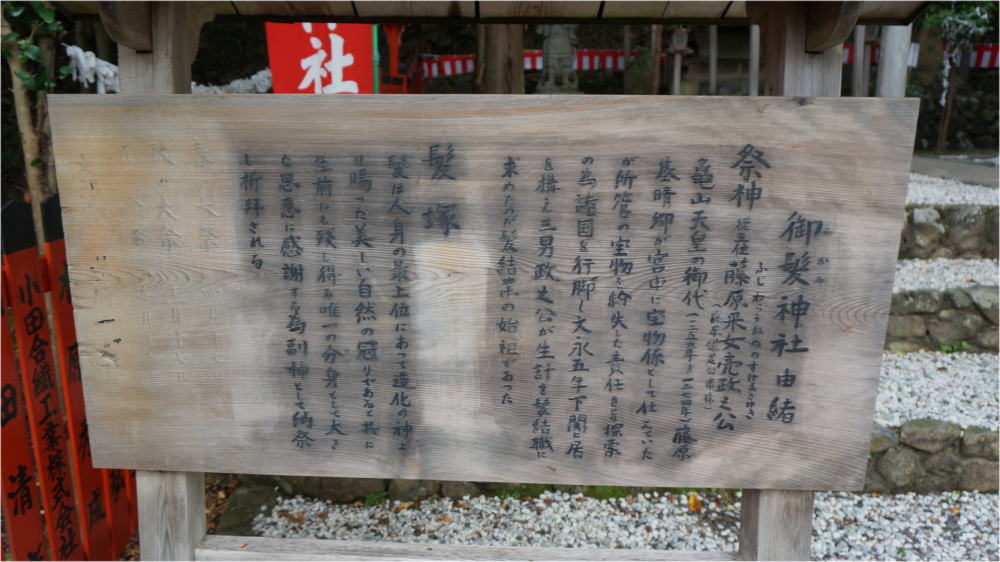 御髪神社由緒
みかみ
祭神 従三位藤原采女亮政之公
ふじわらうねめのすけまさゆき
(藤原鎌足公末孫)
亀山天皇の御代(一二五九年ー一二七四年)藤原
基晴卿が宮中に宝物係として仕えていた
が所管の宝物を紛失した責任を負い探索
の為諸国を行脚し文永五年下関に居
を構え三男政之公が生計を髪結職に
求めたのが髪結業の始祖であった
髪塚
髪は人身の最上位にあって造化の神よ
り賜った美しい自然の冠りであると共に
生前にも残し得る唯一の分身として大き
な恩恵に感謝する為副神として納祭
し祈拝される
社
小田合繊工業株式会社
田
清
成